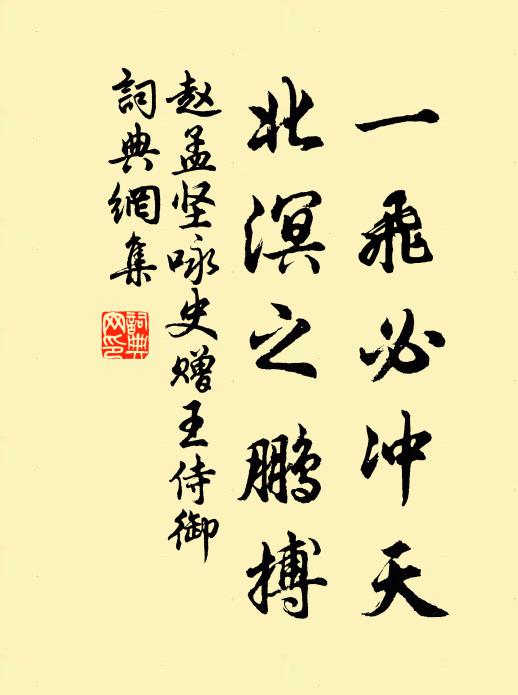 一飛必冲天
北溟之鵬搏
赵孟坚咏史赠王侍御
詞典網集
詞典
网印